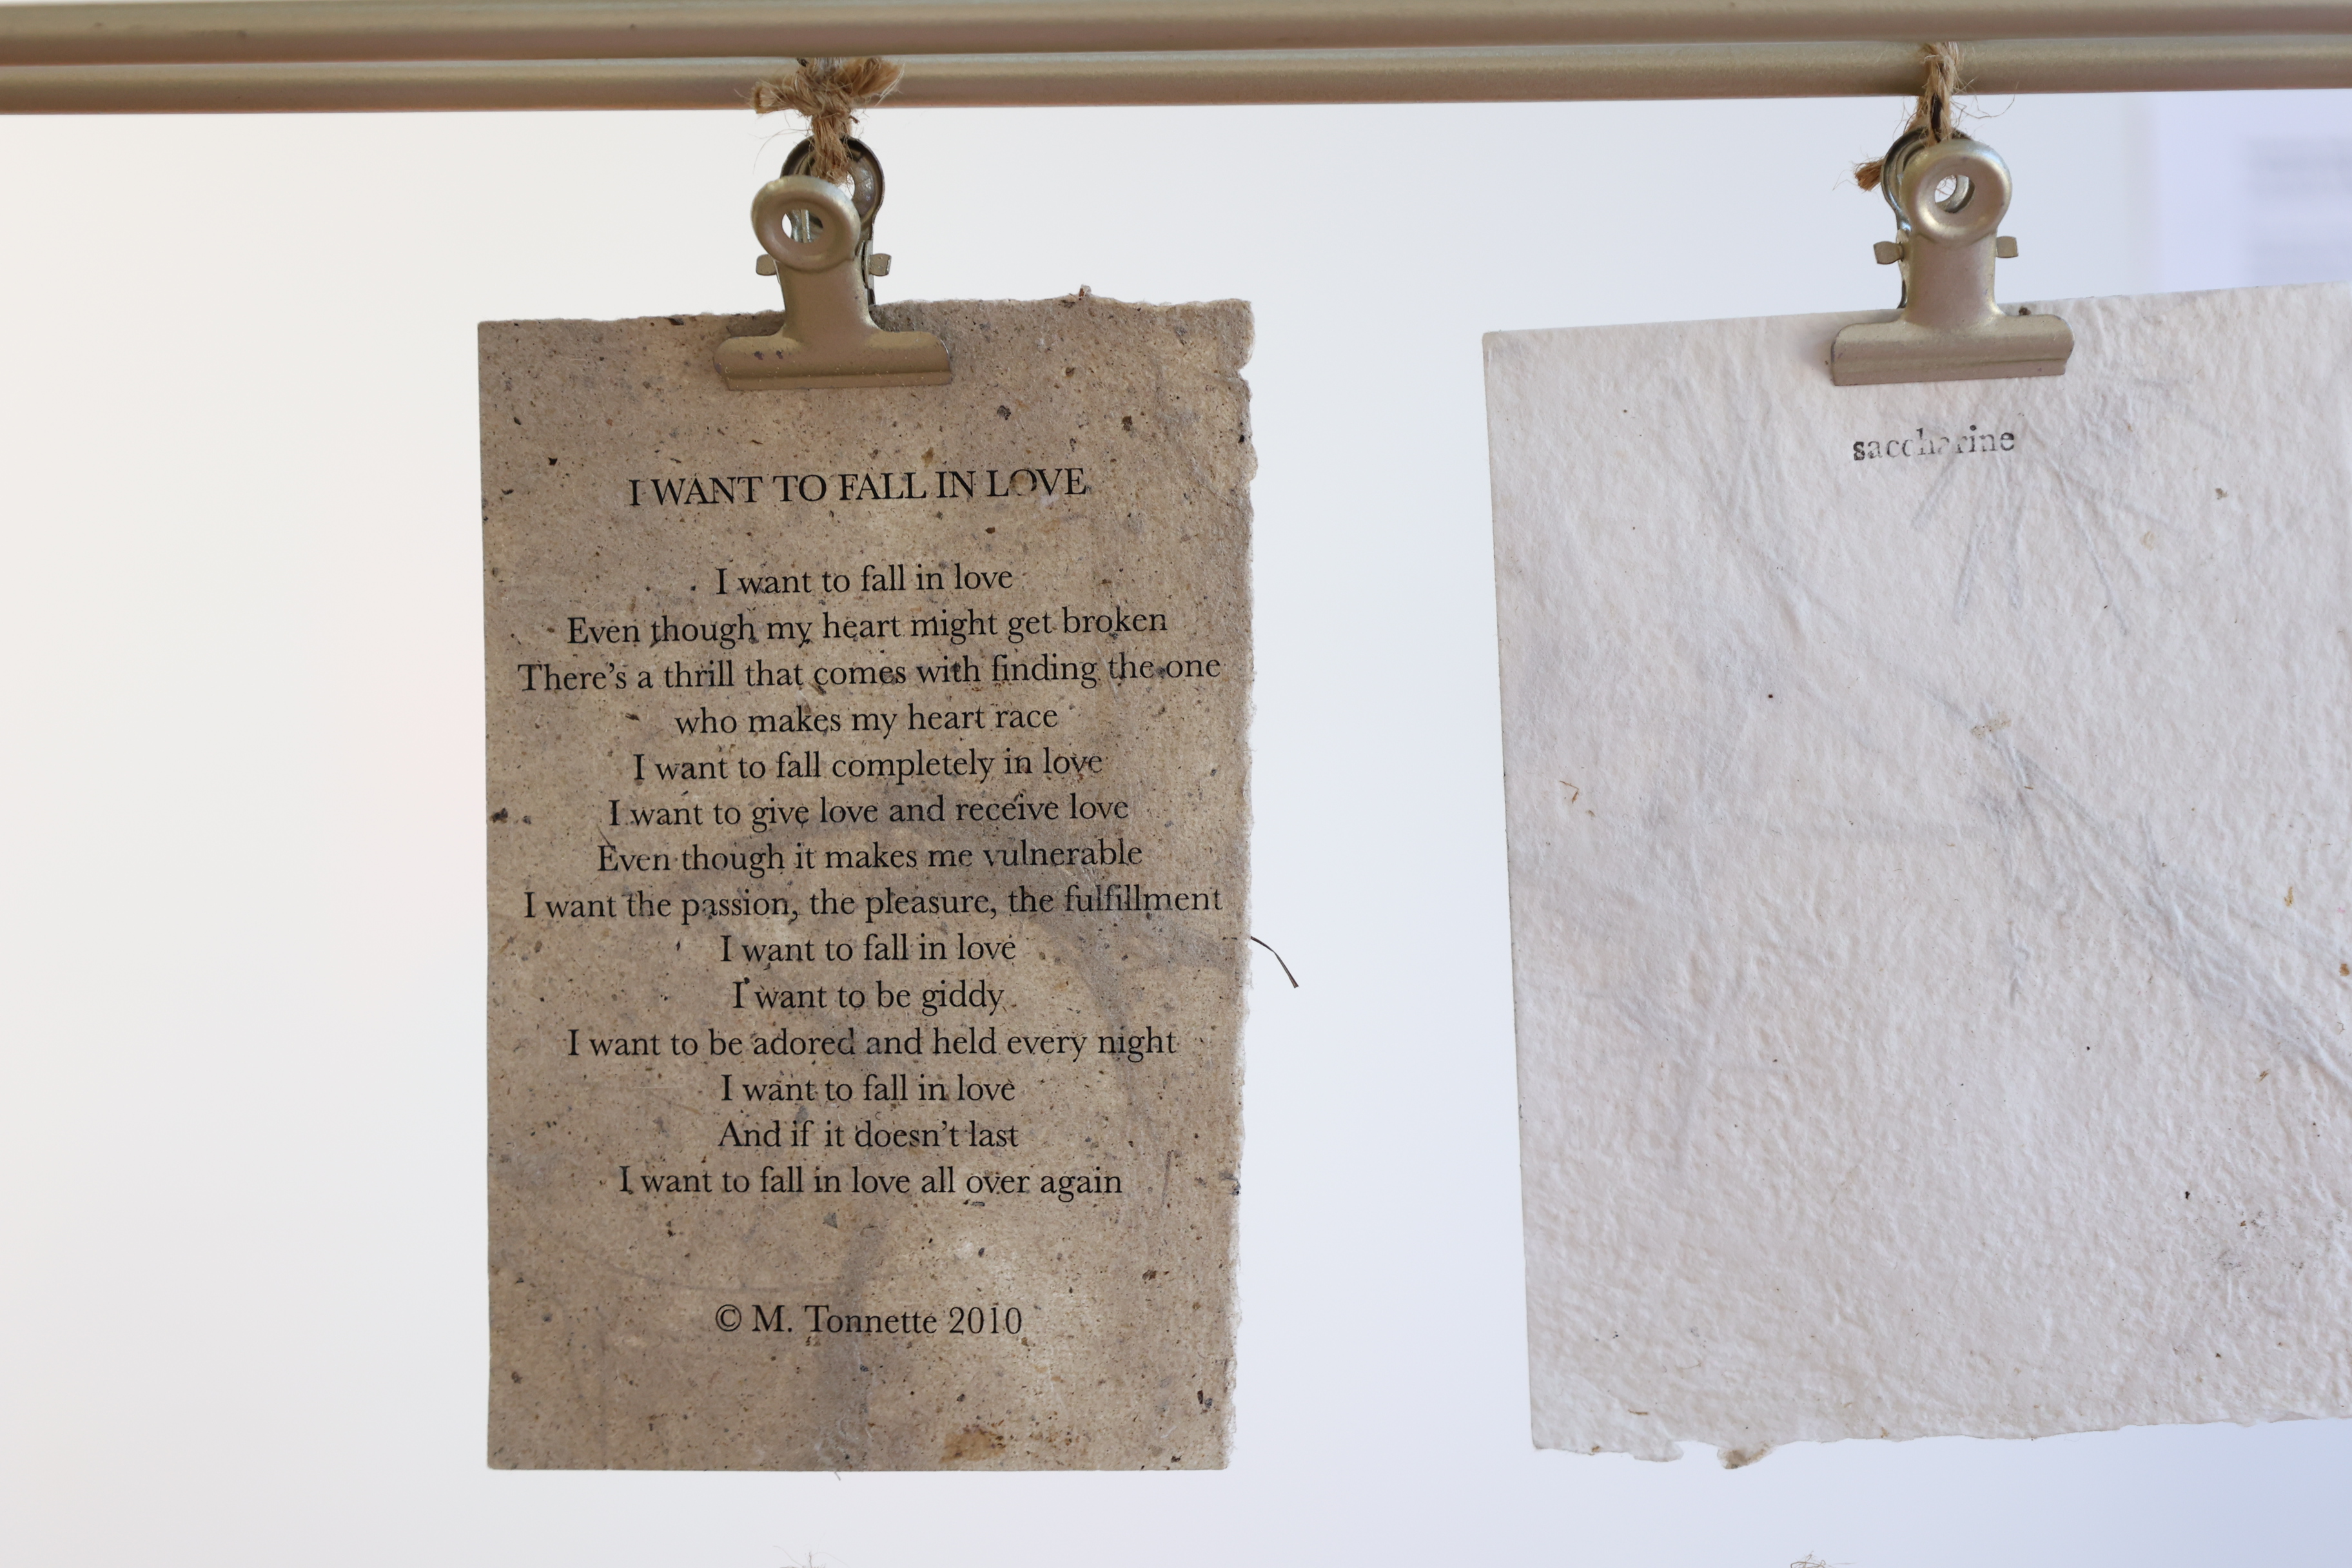 I WANT TO FALL IN LOVE
I want to fall in love
Even though my heart might get broken
There's a thrill that comes with finding the one
who makes my heart race
I want to fall completely in love
I want to give love and receive love
Even though it makes me vulnerable
I want the passion, the pleasure, the fulfillment
I want to fall in love
I want to be giddy
I want to be adored and held every night
I want to fall in love
And if it doesn't last
I want to fall in love all over again
© M. Tonnette 2010
saccharine